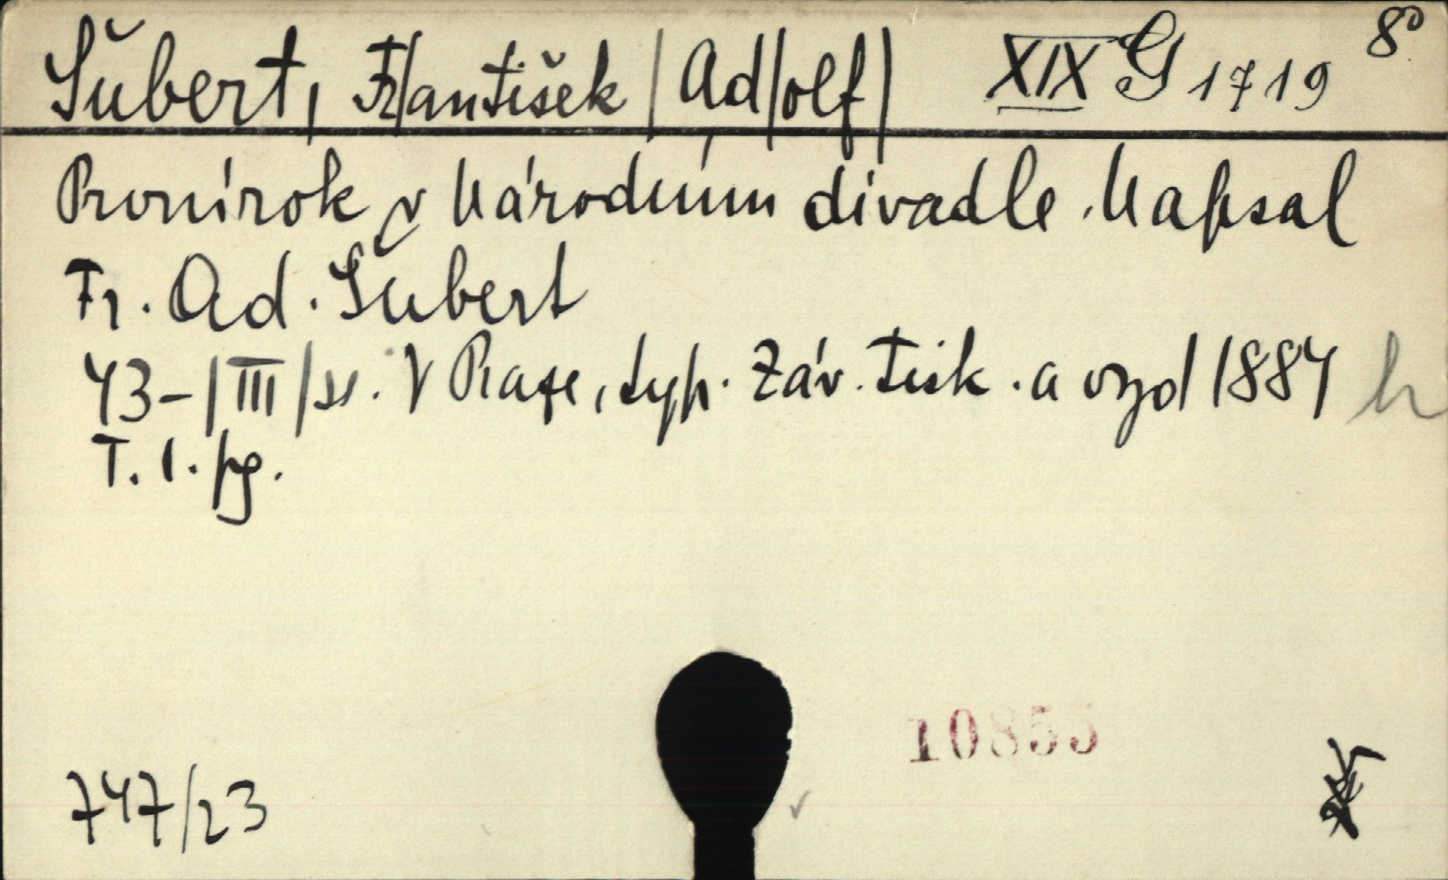 Šubert, Fr/antišek/ Ad/olf/ XIX G 1719 8°
První rok v Národním divadle. Napsal
Fr. Ad. Šubert
43-/III/ss. V Praze, typ. Záv. tisk. a vyd 1884
T. l. pg.
10855
747/23